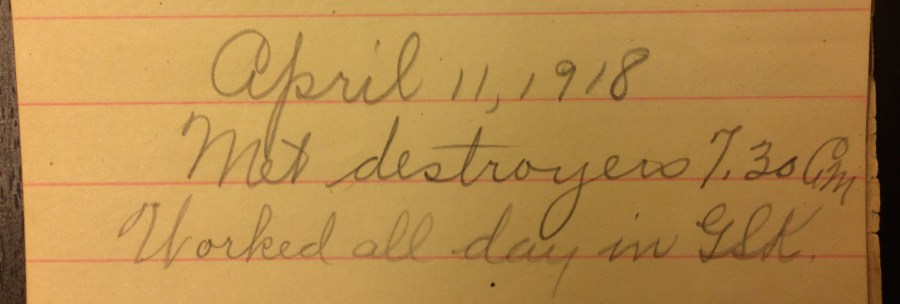 April 11, 1918
Met destroyers 7.30 Am
Worked all day in GSK.